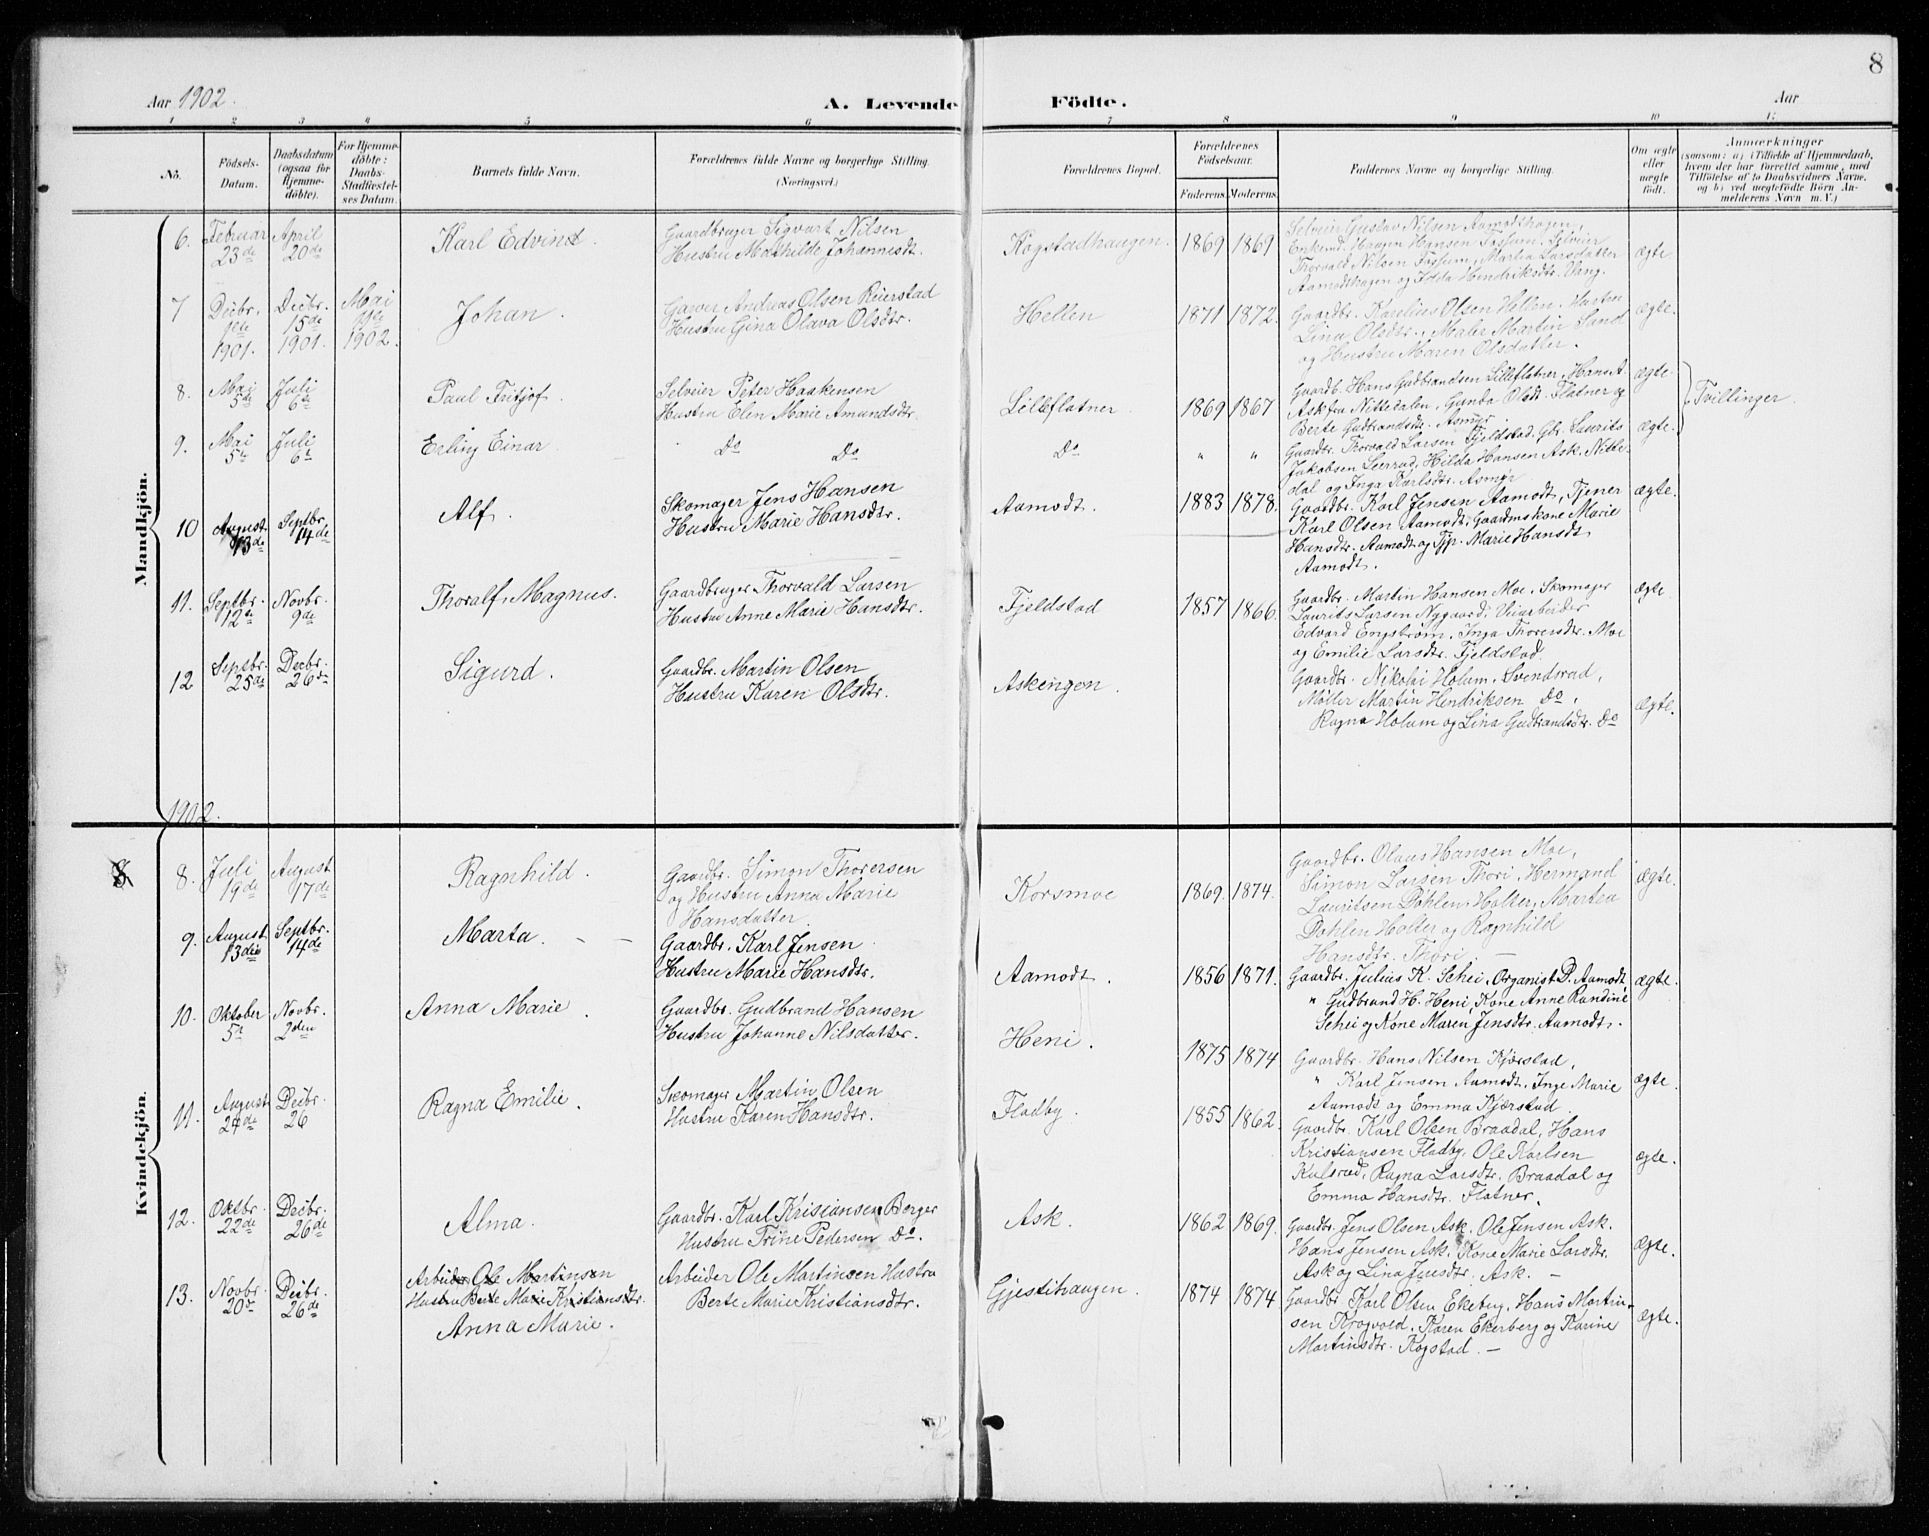 8
Aar 1902.
A. Levende Födte.
Aar
1 2 3 4 5 6 7 8 9 10 11
No.
Födsels-Datum.
Daabsdatum (ogsaa for Hjemme-döbte).
For Hjemme-döbte: Daabs-Stadfæstel-ses Datum.
Barnets fulde Navn.
Forældrenes fulde Navne og borgerlige Stilling.
(Næringsvei.)
Forældrenes Bopæl.
Forældrenes Födselsaar.
Faderens. Moderens.
Faddernes Navne og borgerlige Stilling.
Om ægte eller uægte födt.
Anmærkninger
(saasom: a) i Tilfælde af Hjemmedaab, hvem der har forrettet samme, med Tilföielse af to Daabsvidners Navne, og b) ved uægtefödte Börn An-melderens Navn m. V.)
Mandkjön.
6. Februar 23de April 20de
Karl Edvind.
Gaardbruger Sigvart Nilsen
Hustru Mathilde Johannesdt.
Kogstadhaugen. 1869 1869
Selveier Gustav Nilsen Aamodthagen,
Enkemd. Haagen Hansen Fossum, Selveier
Thorvald Nilsen Fossum, Martia Larsdatter
Aamodthagen og Hilda Hendriksdtr. Vang.
ægte
7 Decbr. 1ste 1901. Decbr. 15de 1901. Mai 1902.
Johan.
Garver Andreas Olsen Reierstad
Hustru Gina Olava Olsdtr.
Hellen 1871 1872.
Gaardb. Karelius Olsen Hellen, Hustru
Lina Olsdtr., Maler Martin Sand
og Hustru Maren Olsdatter.
ægte.
8. Mai 5de Juli 6te
Paul Fritjof.
Selveier Peter Haakensen
Hustru Elen Marie Amundsdtr.
Lilleflatner. 1869 1867
Gaardb. Hans Gudbrandsen Lilleflatner, Hans A.
Ask fra Nittedalen, Gunda Olsdt. Flatner og
Berte Gudbrandsdr. Asmyr
ægte
Tvillinger.
9. Mai 5te Juli 6t
Erling Einar.
Do Do
Do " "
Gaardbr. Thorvald Larsen Fjeldstad. Gbr. Laurits
Jakobsen Leerrud, Hilda Hansen Ask. Nitte-
dal og Inga Karlsdtr. Asmyr
ægte.
10 August 13de Septbr. 14de
Alf.
Skomager Jens Hansen
Hustru Marie Hansdtr.
Aamodt. 1883 1878.
Gaardbr. Karl Jensen Aamodt, Tjener
Karl Olsen Aamodt, Gaardmskone Marie
Hansdtr. Aamodt og Tjp. Marie Hansdt
Aamodt.
ægte.
11. Septbr. 12te Novbr. 9de
Thoralf Magnus.
Gaardbruger Thorvald Larsen
Hustru Anne Marie Hansdtr.
Fjeldstad 1857 1866.
Gaardbr. Martin Hansen Moe, Skomager
Laurits Larsen Nygaard, Veiarbeider
Edvard Engstrøm, Inga Thorersdtr. Moe
og Emilie Larsdtr. Fjeldstad.
ægte.
12 Septbr. 25de Decbr. 26de
Sigurd.
Gaardbr. Martin Olsen
Hustru Karen Olsdtr.
Askengen.
Gaardbr. Nikolai Holum, Svendsrud,
Møller Martin Hendriksen Do,
Ragna Holum og Lina Gudbrandsdtr. Do
ægte.
1902.
Kvindekjön.
8. Juli 19de August 17de
Ragnhild.
Gaardbr. Simon Thorersen
og Hustru Anna Marie
Hansdatter.
Korsmoe 1869. 1874.
Gaardbr. Olaus Hansen Moe,
Simon Larsen Thori, Hermand
Lauritsen Døhlen, Holter, Martea
Døhlen Holter og Ragnhild
Hansdtr. Thori
ægte.
9. August 13de Septbr. 14de
Marta.
Gaardbr. Karl Jensen
Hustru Marie Hansdtr.
Aamodt. 1856 1871.
Gaardbr. Julius K. Schei, Organist P. Aamodt,
" Gudbrand H. Heni, Kone Anne Randine
Schei og Kone Maren Jensdtr. Aamodt.
ægte.
10. Oktober 5te Novbr. 2den
Anna Marie.
Gaardbr. Gudbrand Hansen
Hustru Johanne Nilsdatter.
Heni. 1875 1874
Gaardbr. Hans Nilsen Kjærstad,
" Karl Jensen Aamodt, Inge Marie
Aamodt og Emma Kjærstad.
ægte.
11. August 24de Decbr. 26
Ragna Emilie.
Skomager Martin Olsen
Hustru Karen Hansdtr.
Fladby. 1855 1862.
Gaardbr. Karl Olsen Braadal, Hans
Kristiansen Fladby, Ole Karlsen
Kulsrud, Ragna Larsdtr. Braadal og
Emma Hansdtr. Flatner.
ægte.
12. Oktbr. 22de Decbr. 26de
Alma.
Gaardbr. Karl Kristiansen Berger
Hustru Trine Pedersen Do.
Ask. 1862 1869.
Gaardbr. Jens Olsen Ask, Ole Jensen Ask.
Hans Jensen Ask, Kone Marie Larsdtr.
Ask og Lina Jensdtr. Ask.
ægte.
13. Novbr. 20de Decbr. 26de
Arbeider Ole Martinsen
Hustru Berte Marie Kristiansdtr.
Anna Marie.
Arbeider Ole Martinsen Hustru
Berte Marie Kristiansdtr.
Gjestihaugen. 1874 1874
Gaardbr. Karl Olsen Ekeberg, Hans Martin-
sen Krogvold, Karen Ekerberg og Karine
Martinsdtr. Kogstad.
ægte.